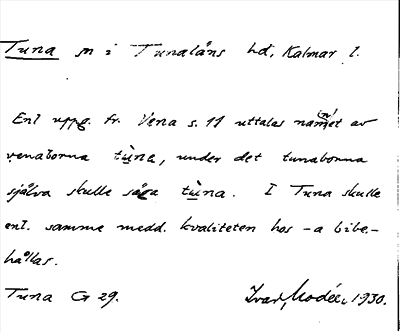 Tuna sn i Tunaläns hd, Kalmar l.
Enl uppg. fr. Vena s. 11 uttalas namnet av
venaborna tùna, under det tunaborna
själva skulle säga tùna. I Tuna skulle
enl. samme medd. kvaliteten hos -a bibe-
hållas.
Tuna G 29.
Ivar Modéer 1930.